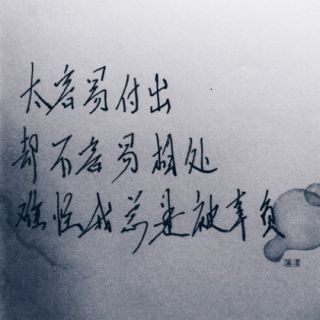 太容易付出
却不容易相处
难怪我总是被辜负